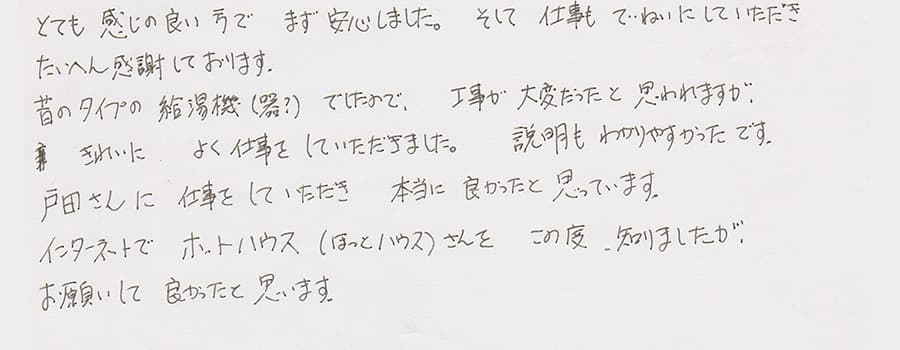 とても 感じの良い方で まず 安心しました。 そして 仕事も ていねいにしていただき
たいへん感謝しております。
昔のタイプの 給湯機(器?) でしたので、 工事が 大変だったと 思われますが、
きれいに よく 仕事を していただきました。 説明も わかりやすかったです。
戸田さんに 仕事をしていただき 本当に 良かったと 思っています。
インターネットで ホットハウス (ほっとハウス)さんを この度 知りましたが、
お願いして 良かったと 思います。